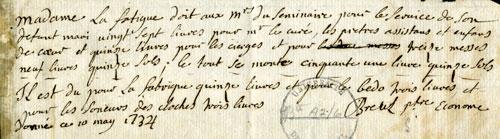 Madame La fatique doit aux mrs du seminaire pour le service de son
defunt mari vingt sept livres pour mr le curé, les pretres assistans et enfans
de cœur et quinze livres pour les cierges et pour treize messes
neuf livres quinze sols, le tout se monte cinquante une livre quinze sols
Il est du pour la fabrique quinze livres et pour le bedo trois livres et
pour les soneurs des cloches trois livres Breul ptre Econome
donne ce 10 may 1734